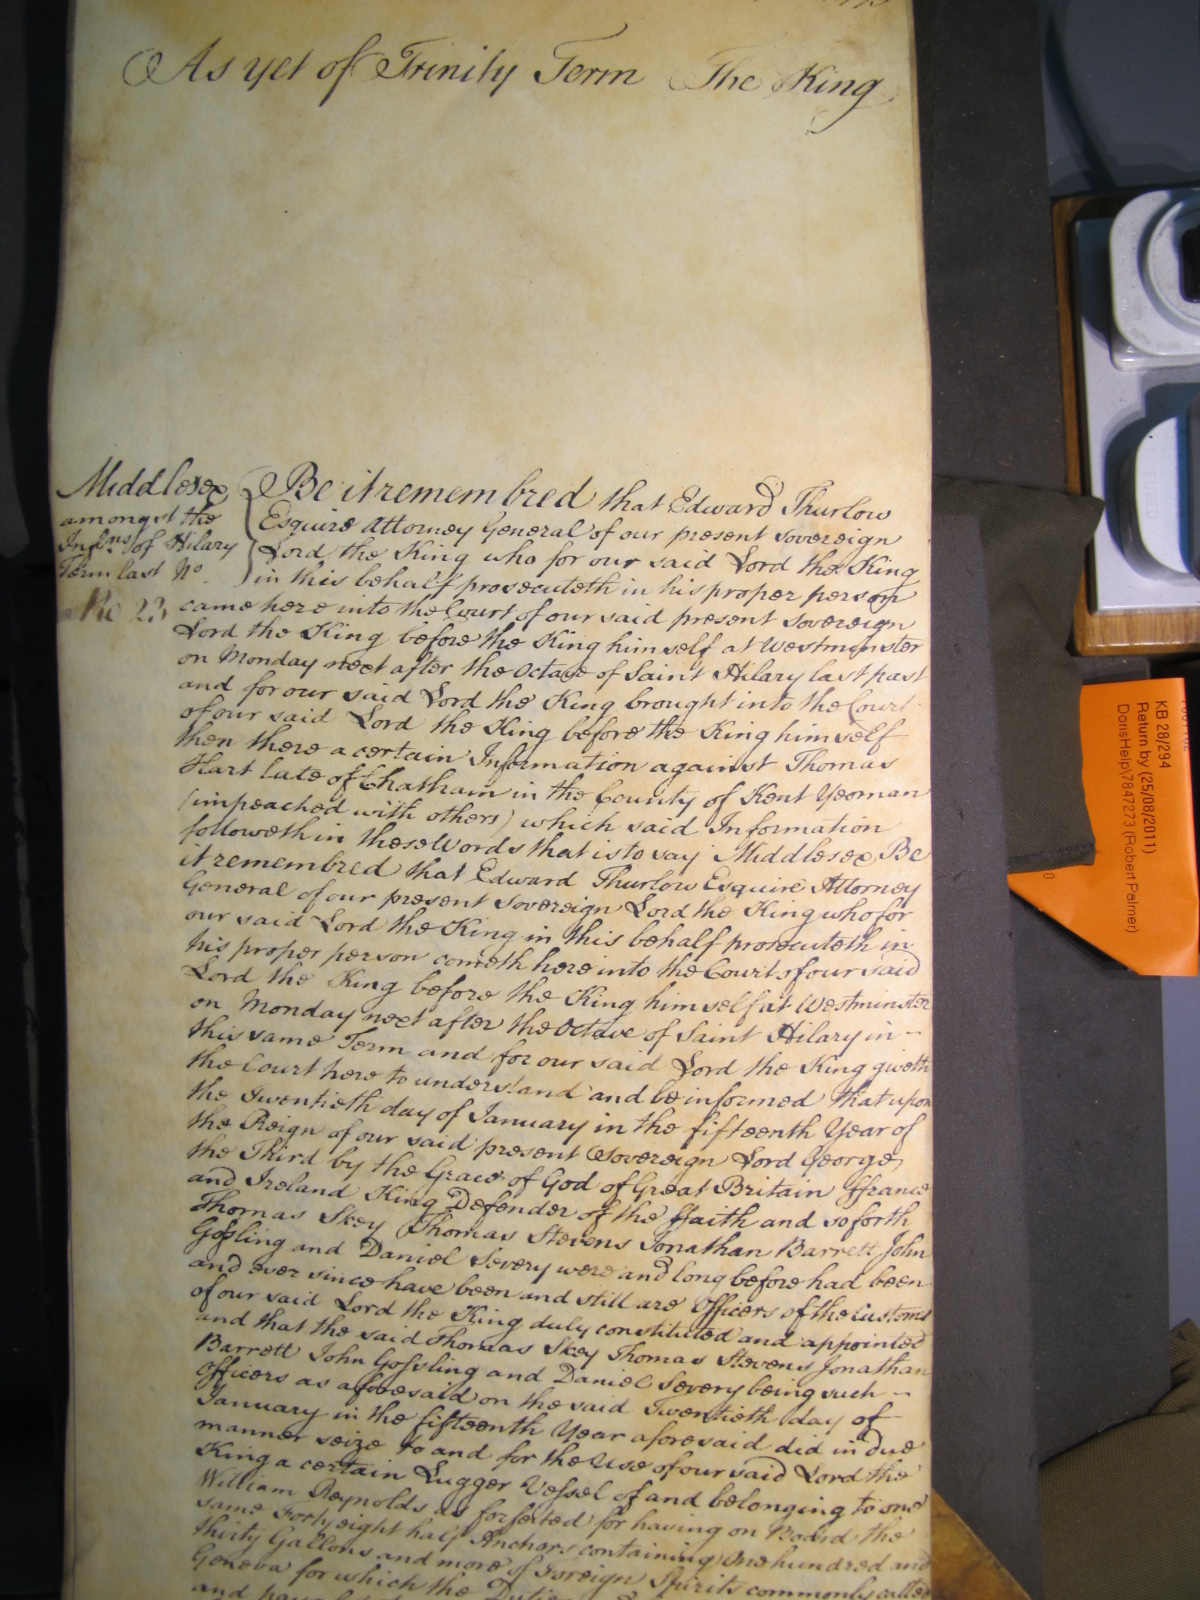 As yet of Trinity Term The King
Middlesex
amongst the
Inflns of Hilary
Term last No
No 23
Be it remembred that Edward Thurlow
Esquire Attorney General of our present Sovereign
Lord the King who for our said Lord the King
in this behalf prosecuteth in his proper person
came here into the Court of our said present Sovereign
Lord the King before the King himself at Westminster
on Monday next after the Octave of Saint Hilary last past
and for our said Lord the King brought into the Court
of our said Lord the King before the King himself
then there a certain Information against Thomas
Hart late of Chatham in the County of Kent Yeoman
(impeached with others) which said Information
followeth in these Words that is to say Middlesex Be
it remembred that Edward Thurlow Esquire Attorney
General of our present Sovereign Lord the King who for
our said Lord the King in this behalf prosecuteth in
his proper person cometh here into the Court of our said
Lord the King before the King himself at Westminster
on Monday next after the Octave of Saint Hilary in
this same Term and for our said Lord the King giveth
the Court here to understand and be informed that upon
the Twentieth day of January in the fifteenth Year of
the Reign of our said present Sovereign Lord George
the Third by the Grace of God of Great Britain ffrance
and Ireland King Defender of the ffaith and so forth
Thomas Skey Thomas Stevens Jonathan Barrett John
Gossling and Daniel Severy were and long before had been
and ever since have been and still are Officers of the Customs
of our said Lord the King duly constituted and appointed
and that the said Thomas Skey Thomas Stevens Jonathan
Barrett John Gossling and Daniel Severy being such
Officers as aforesaid on the said Twentieth day of
January in the fifteenth Year aforesaid did in due
manner seize to and for the Use of our said Lord the
King a certain Lugger Vessel of and belonging to one
William Reynolds as forfeited for having on Board the
same Forty eight half Anchors containing One hundred and
thirty Gallons and more of Foreign Spirits commonly called
Geneva for which the Duties
KB 28/294
Return by (25/08/2011)
DorisHelp\7847273 (Robert Palmer)